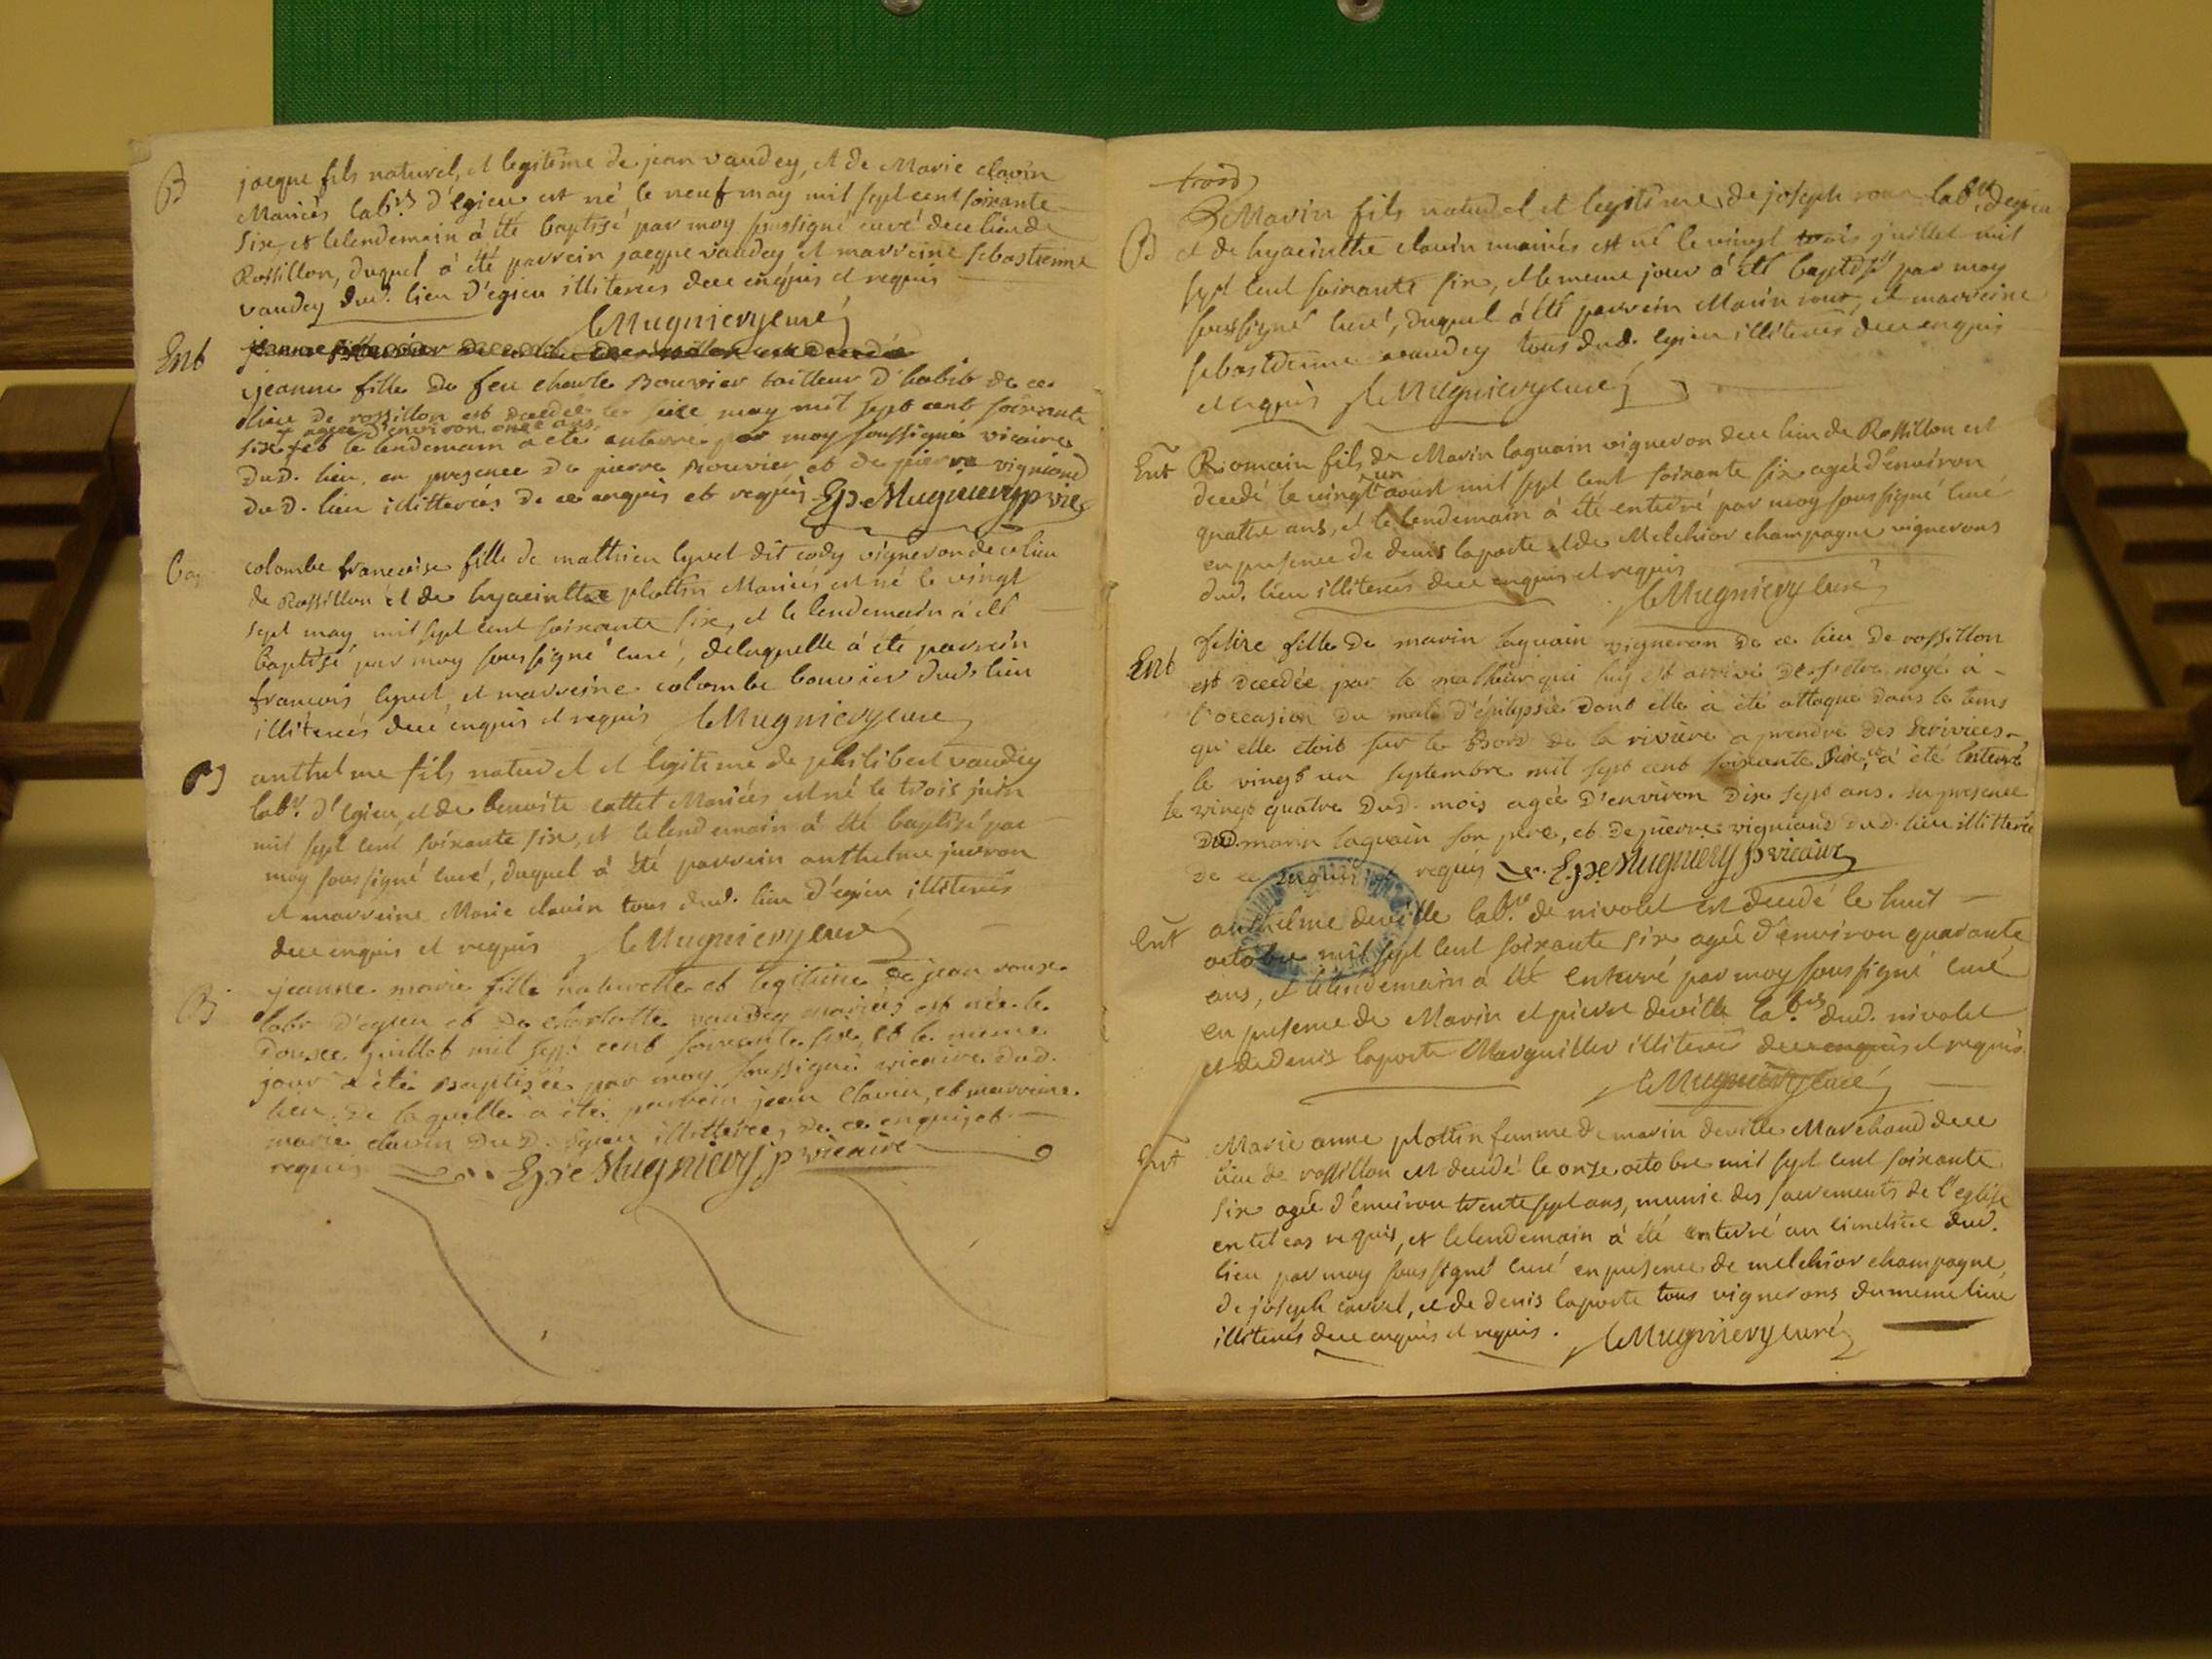 B
jacque fils naturel, et legitime de jean vaudey, et de Marie clavin
Mariés lab.rs d'Egieu est né le neuf may mil sept cent soixante
six, et le lendemain à été baptisé par moy soussigné curé de ce lieu de
Rossillon, duquel à été parrein jacque vaudey et marreine sebastienne
vaudey dud. lieu d'egieu illiterés de ce enquis et requis
Mugniery curé
Ent
jeanne fille de feu charle Bouvier tailleur d'habit de ce
lieu de rossillon est decedée le seize may mil sept cent soixante
agée d'environ onze ans
six et le lendemain a eté enterré par moy soussigné vicaire
dud. lieu en presence de pierre Bouvier et de pierre vigniand
dud. lieu illitterés de ce enquis et requis Mugniery p vic
Bap
colombe francoise fille de mathieu lyvet dit cody vigneron de ce lieu
de Rossillon et de hyacinthe plottin Mariés est né le vingt
sept may mil sept cent soixante six, et le lendemain à été
baptisé par moy soussigné curé, de laquelle à été parrein
francois lyvet, et marreine colombe bouvier dud. lieu
illiterés de ce enquis et requis Mugniery curé
B
anthelme fils naturel et legitime de philibert vaudey
lab.r d'Egieu, et de benoite cattet Mariés est né le trois juin
mil sept cent soixante six, et le lendemain à été baptisé par
moy soussigné curé, duquel à été parrein anthelme juvron
et marreine Marie clavin tous dud. lieu d'egieu illiterés
de ce enquis et requis Mugniery curé
B
jeanne marie fille naturelle et legitime de jean roux
labr d'egieu et de charlotte vaudey mariés est née le
douze juillet mil sept cent soixante six, et le meme
jour a été Baptisée par moy soussigné vicaire dud.
lieu. de laquelle a été parrein jean Clavin, et marreine
marie clavin dud. Egieu illitterés, de ce enquis et
requis Mugniery p vicaire
trois
B
Marin fils naturel et legitime de joseph roux lab.r d'egieu
et de hyacinthe clavin mariés est né le vingt trois juillet mil
sept cent soixante six, et le meme jour à été baptisé par moy
soussigné curé, duquel à été parrein Marin roux, et marreine
sebastienne vaudey tous dud. egieu illiterés de ce enquis
et requis Mugniery curé
Ent
Romain fils de Marin laguain vigneron de ce lieu de Rossillon est
un
decedé le vingt aoust mil sept cent soixante six agée d'environ
quatre ans, et le lendemain à été enterré par moy soussigné curé
en presence de denis laporte et de Melchior champagne vignerons
dud. lieu illiterés de ce enquis et requis
Mugniery curé
Ent
fille de marin laguain vigneron de ce lieu de rossillon
est decedée par le malheur qui luy est arrivé de s'etre noyé à
l'occasion du mal d'épilypsie dont elle à été attaque dans le tems
qu'elle etoit sur le Bord de la rivière a prendre des
le vingt un septembre mil sept cent soixante six, et à été enterré
le vingt quatre dud. mois agée d'environ dix sept ans. en presence
dud. marin laguain son pere, et de pierre vigniand dud. lieu illitteré
de ce enquis et requis Mugniery p vicaire
Ent
anthelme deville lab.r de nivolet est decedé le huit
octobre mil sept cent soixante six agée d'environ quarante
ans, et le lendemain à été enterré par moy soussigné curé
en presence de Marin et pierre deville lab.rs dud. nivolet
et de denis laporte Marguillier illiterés de ce enquis et requis
Mugniery curé
Ent
Marie anne plottin femme de marin deville Marchand de ce
lieu de rossillon est decedé le onze octobre mil sept cent soixante
six agée d'environ trente sept ans, munie des sacrements de l'eglise
en tel cas requis, et le lendemain à été enterré au cimetiere dud.
lieu par moy soussigné curé en presence de melchior champagne,
de joseph carrel, et de denis laporte tous vignerons du meme lieu
illiterés de ce enquis et requis. Mugniery curé